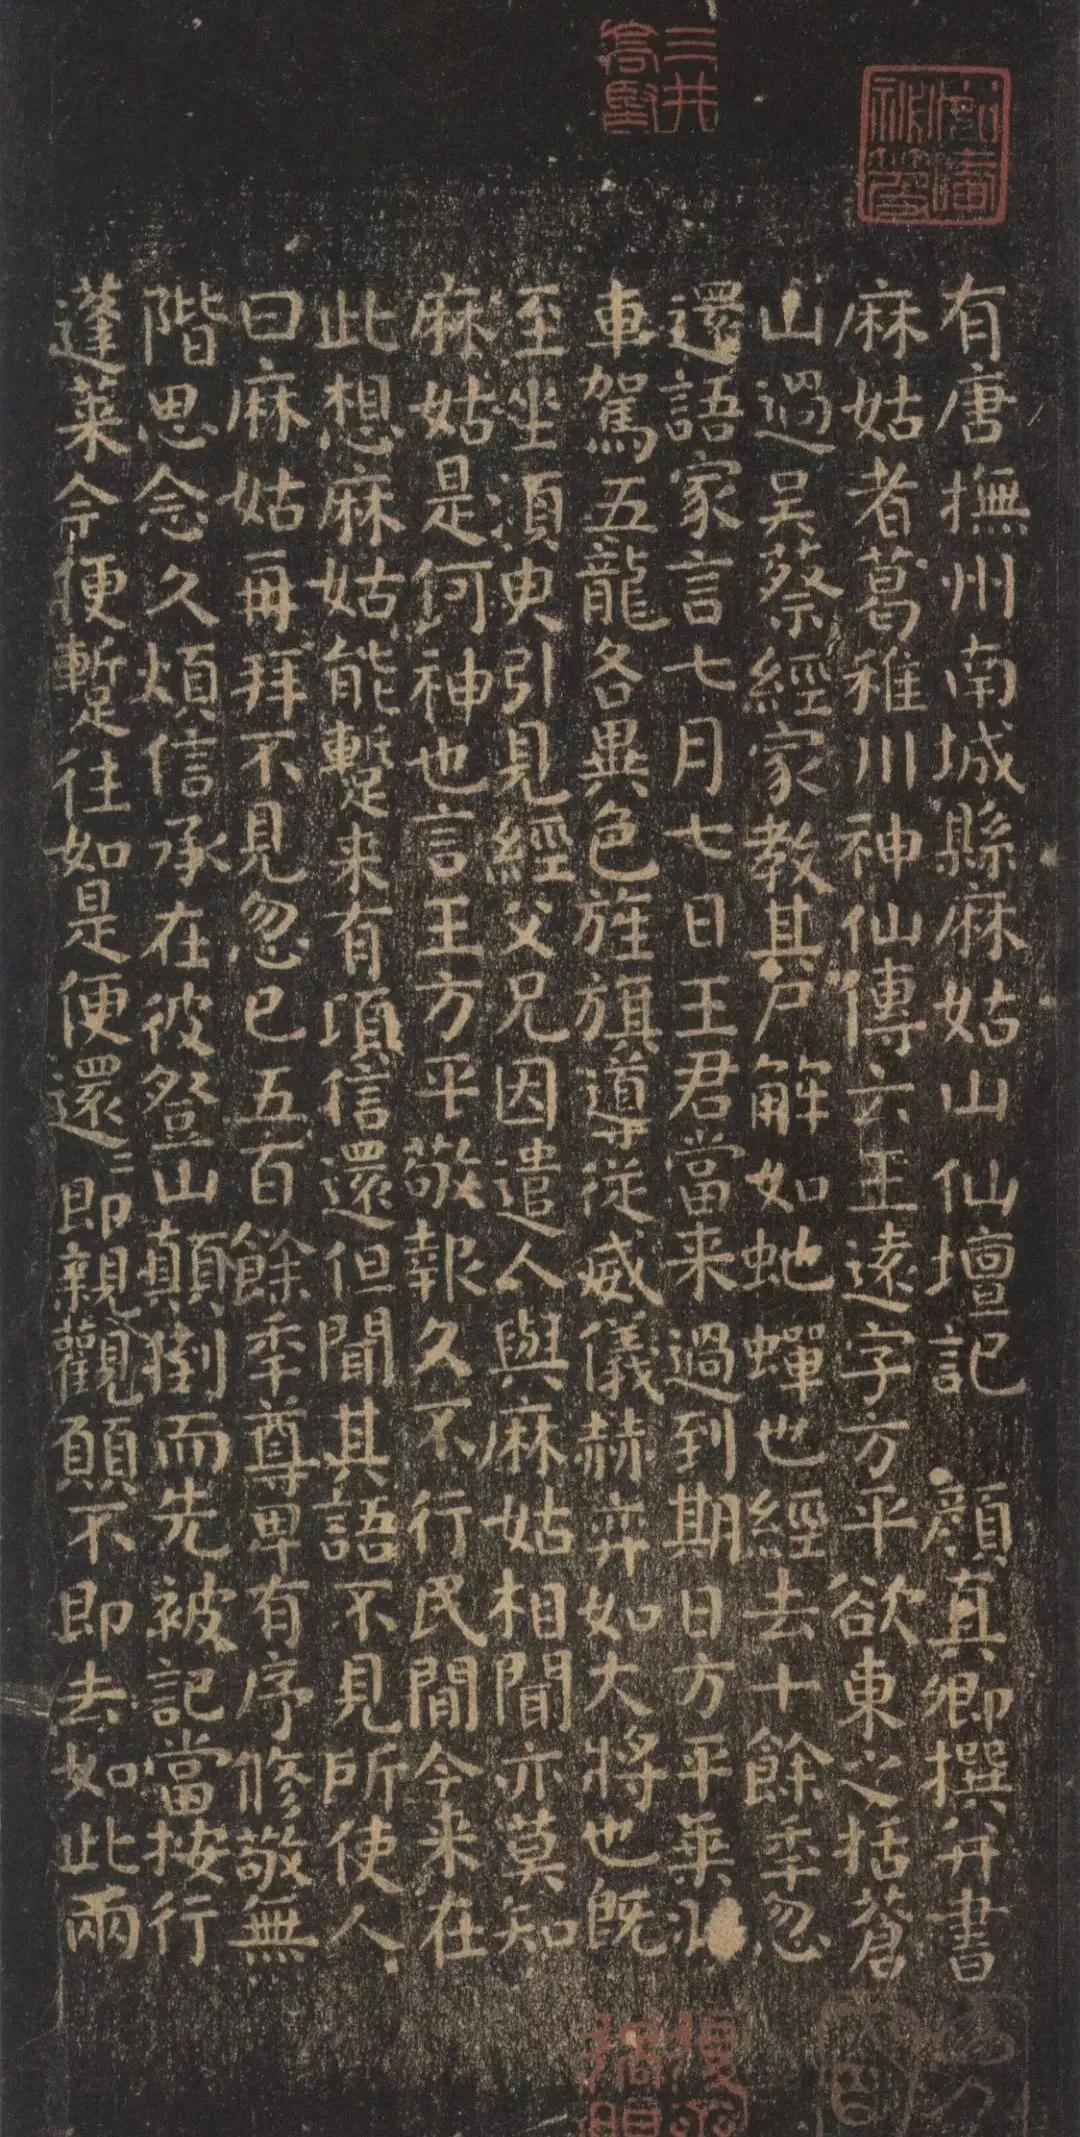 三井
高堅
有唐撫州南城縣麻姑山仙壇記 顏真卿撰并書
麻姑者葛稚川神仙傳云王遠字方平欲東之括蒼
山過吳蔡經家教其尸解如虵蟬也經去十餘季忽
還語家言七月七日王君當来過到期日方平乗
車駕五龍各異色旌旗導從威儀赫弈如大將也既
至坐須臾引見經父兄因遣人與麻姑相聞亦莫知
麻姑是何神也言王方平敬報久不行民間今来在
此想麻姑能蹔来有頃信還但聞其語不見所使人
曰麻姑再拜不見忽已五百餘季尊卑有序修敬無
階思念久煩信承在彼登山顛倒而先被記當按行
蓬萊今便蹔往如是便還=即親觀願不即去如此兩